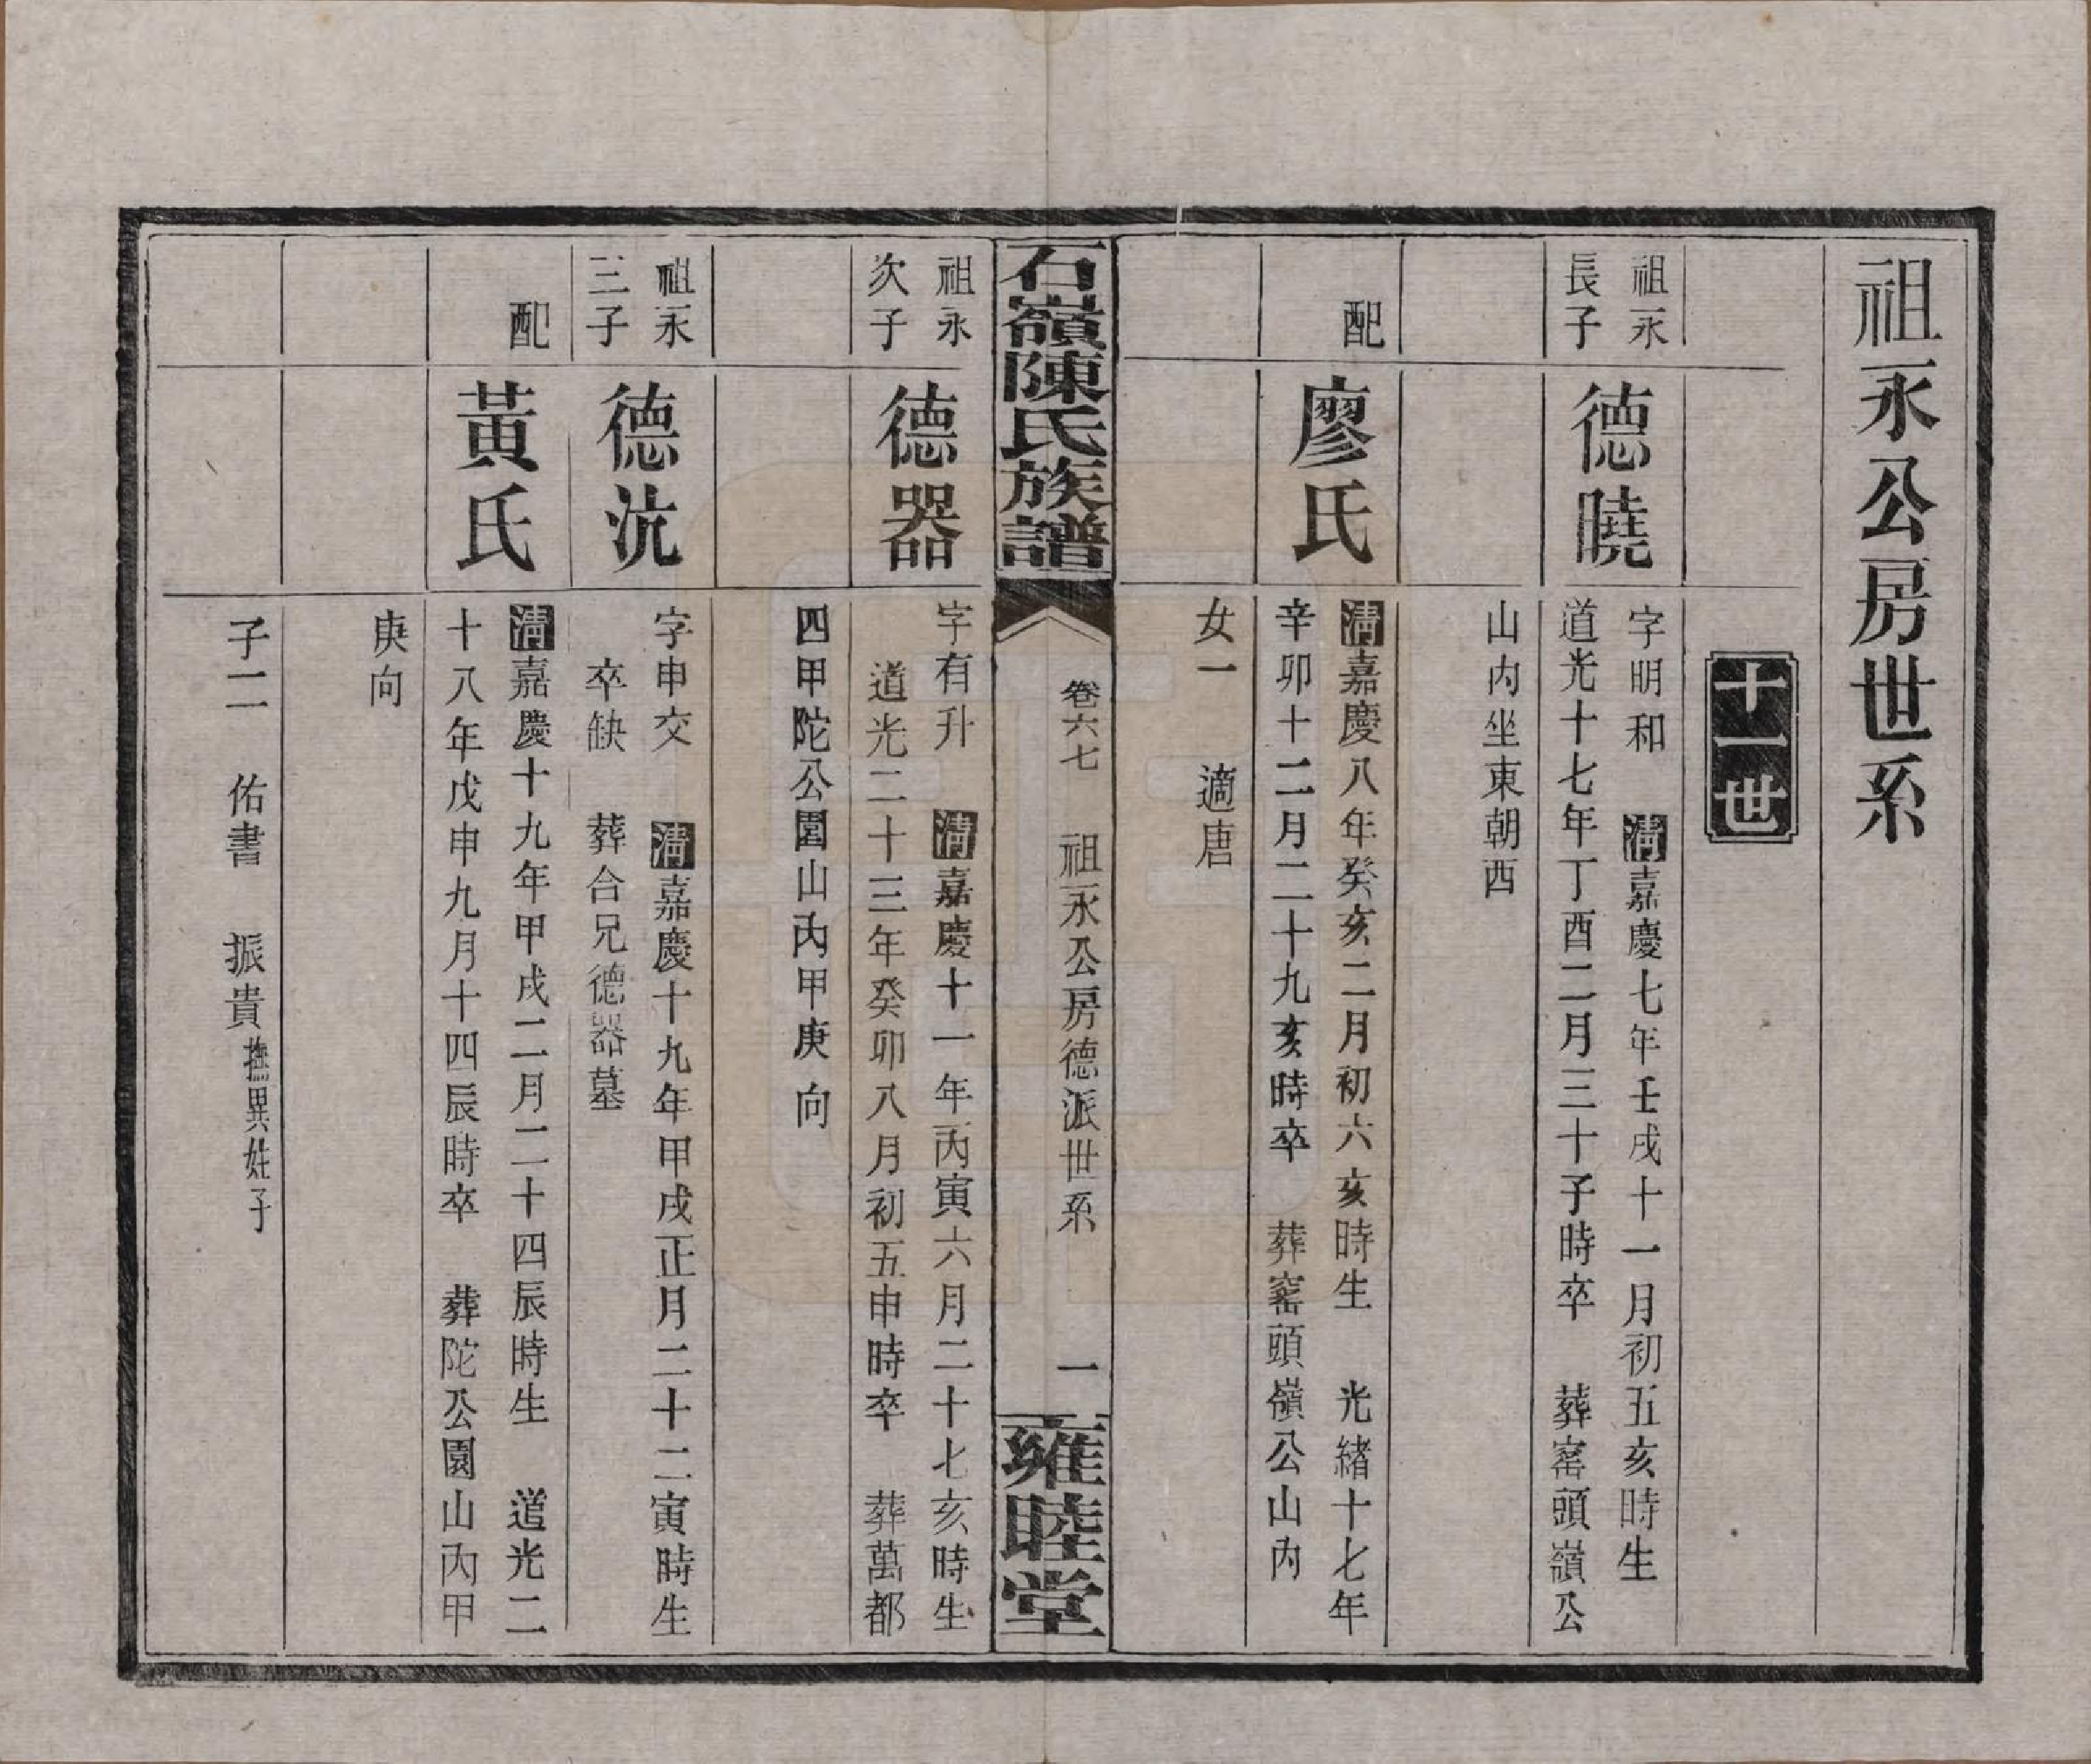 祖永公房世系
十一世
祖永
長子
德曉
字明和　清嘉慶七年壬戌十一月初五亥時生
道光十七年丁酉二月三十子時卒　葬窰頭嶺公
山內坐東朝西
配
廖氏
清嘉慶八年癸亥二月初六亥時生　光緒十七年
辛卯十二月二十九亥時卒　葬窰頭嶺公山內
女一　適唐
石嶺陳氏族譜
卷六七　祖永公房德派世系　一
雍睦堂
祖永
次子
德器
字有升　清嘉慶十一年丙寅六月二十七亥時生
道光二十三年癸卯八月初五申時卒　葬萬都
四甲陀公園山內甲庚向
祖永
三子
德沆
字申交　清嘉慶十九年甲戌正月二十二寅時生
卒缺　葬合兄德器墓
配
黃氏
清嘉慶十九年甲戌二月二十四辰時生　道光二
十八年戊申九月十四辰時卒　葬陀公園山內甲
庚向
子二　佑書　振貴撫異姓子